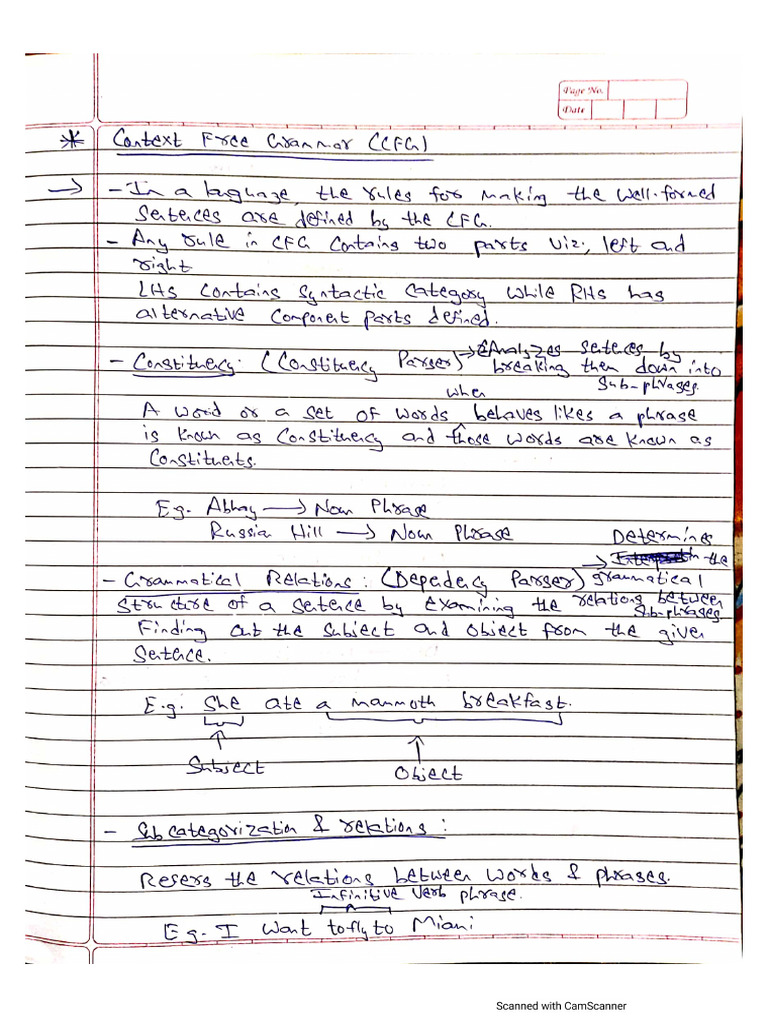 Page No.
Date
* Context Free Grammar (CFG)
→ - In a language, the rules for making the well-formed
Sentences are defined by the CFG.
- Any rule in CFG contains two parts viz., left and
right
LHS contains syntactic category while RHS has
alternative component parts defined.
- Constituency: (Constituency Parser) → Analyzes sentences by
breaking them down into
Sub-phrases.
when
A word or a set of words behaves likes a phrase
is known as Constituency and those words are known as
Constituents.
Eg. Abhay → Noun Phrase
Russia Hill → Noun Phrase
Determines
→ the
- Grammatical Relations: (Depedency Parser) grammatical
structure of a sentence by examining the relations between
Sub-phrases
Finding out the subject and object from the given
Sentence.
E.g. She ate a mammoth breakfast.
Subject
Object
- Subcategorization & relations:
Refers the relations between words & phrases.
Infinitive verb phrase.
Eg. I want to fly to Miami
Scanned with CamScanner